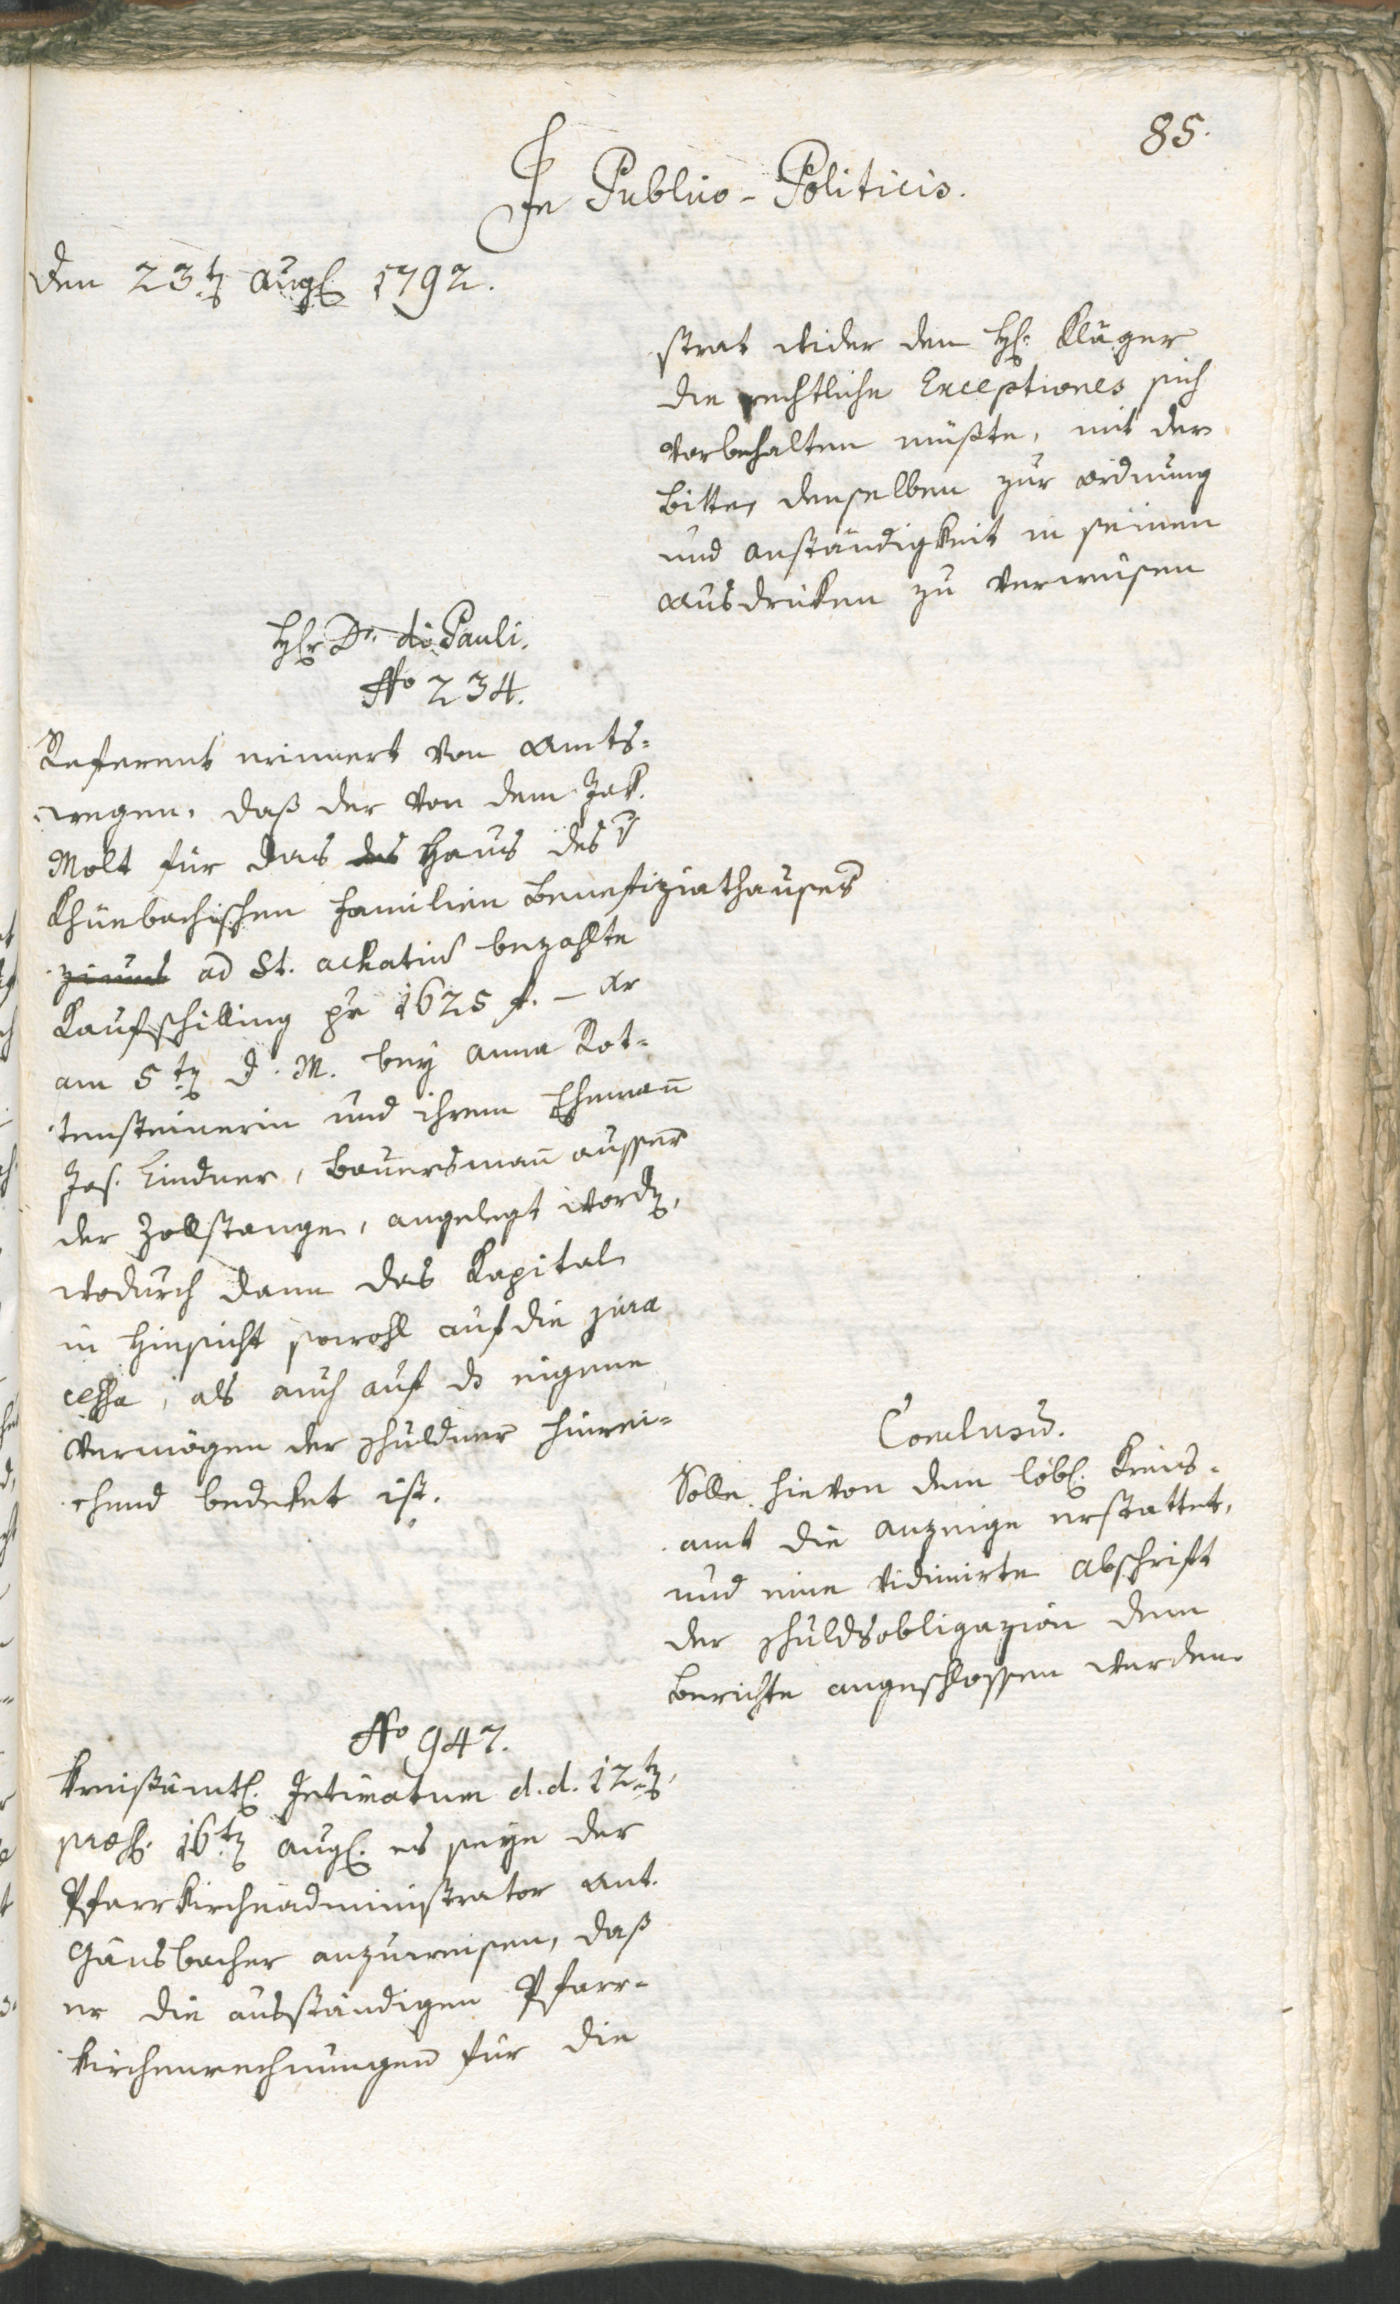 85.
In Publico-Politicis.
Den 23ten Aug. 1792.
strat wider den H. Kläger
die rechtliche Exceptiones sich
vorbehalten müßte, mit der
Bitte, denselben zur Ordnung
und Anständigkeit in seinen
Ausdrüken zu verweisen
Hr Dr. di Pauli.
No 234.
Referent erinnert von Amts-
wegen, daß der von dem Jak.
Molt für das des Haus des
Khüebachischen Familien Benefiziathauses
ad St. Achatium bezahlte
Kaufschilling pr 1625 f. – xr
am 5ten d. M. bey Anna Rot-
tensteinerin und ihrem Ehemann
Jos. Lindner, Bauersmann ausser
der Zollstange, angelegt worden,
wodurch dann das Kapital
in Hinsicht sowohl auf die jura
cessa, als auch auf das eigene
Vermögen der Schuldner hinrei-
chend bedeket ist.
Conclusum.
Solle hievon dem löbl. Kreis-
amt die Anzeige erstattet,
und eine vidimirte Abschrift
der Schuldsobligazion dem
Berichte angeschlossen werden.
No 947.
Kreisämtl. Intimatum d. d. 12ten,
præs. 16ten Aug. es seye der
Pfarrkirchenadministrator Ant.
Gänsbacher anzuweisen, daß
er die ausständigen Pfarr-
kirchenrechnungen für die